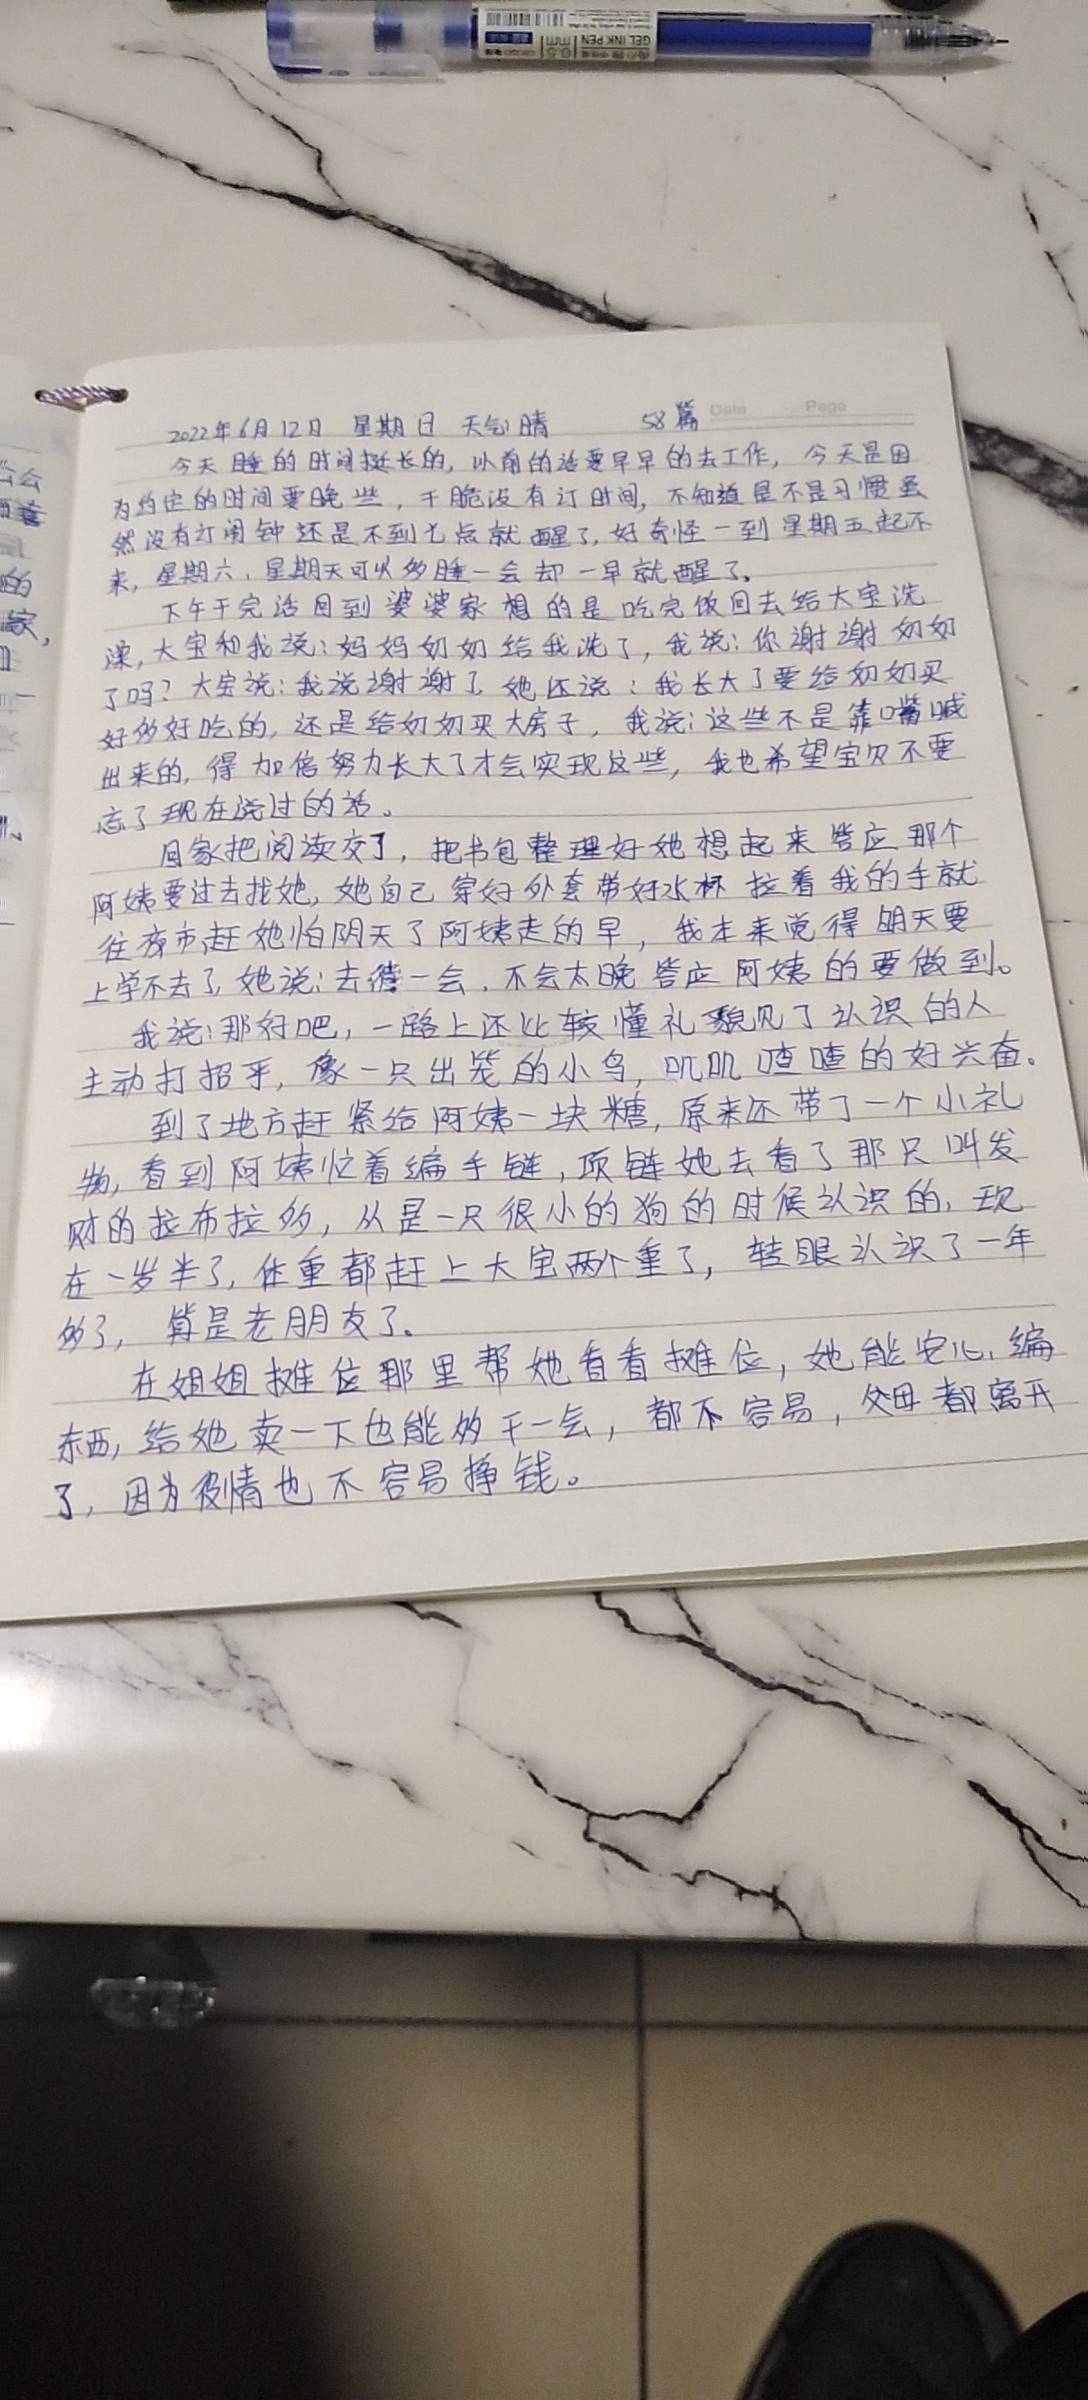 GEL INK PEN
0.5mm
Date Page
2022年6月12日 星期日 天气:晴 58篇
今天睡的时间挺长的,以前的话要早早的去工作,今天是因
为约定的时间要晚些,干脆没有订时间,不知道是不是习惯虽
然没有订闹钟还是不到七点就醒了,好奇怪一到星期五起不
来,星期六、星期天可以多睡一会却一早就醒了。
下午干完活回到婆婆家想的是吃完饭回去给大宝洗
澡,大宝和我说:妈妈奶奶给我洗了,我说:你谢谢奶奶
了吗?大宝说:我说谢谢了,她还说:我长大了要给奶奶买
好多好吃的,还是给奶奶买大房子,我说:这些不是靠嘴喊
出来的,得加倍努力长大了才会实现这些,我也希望宝贝不要
忘了现在说过的话。
回家把阅读交了,把书包整理好她想起来答应那个
阿姨要过去找她,她自己穿好外套带好水杯拉着我的手就
往夜市赶她怕阴天了阿姨走的早,我本来觉得明天要
上学不去了,她说:去待一会,不会太晚答应阿姨的要做到。
我说:那好吧,一路上还比较懂礼貌见了认识的人
主动打招乎,像一只出笼的小鸟,叽叽喳喳的好兴奋。
到了地方赶紧给阿姨一块糖,原来还带了一个小礼
物,看到阿姨忙着编手链,项链她去看了那只叫发
财的拉布拉多,从是一只很小的狗的时候认识的,现
在一岁半了,体重都赶上大宝两个重了,转眼认识了一年
多了,算是老朋友了。
在姐姐摊位那里帮她看看摊位,她能安心编
东西,给她卖一下也能多干一会,都不容易,父母都离开
了,因为疫情也不容易挣钱。